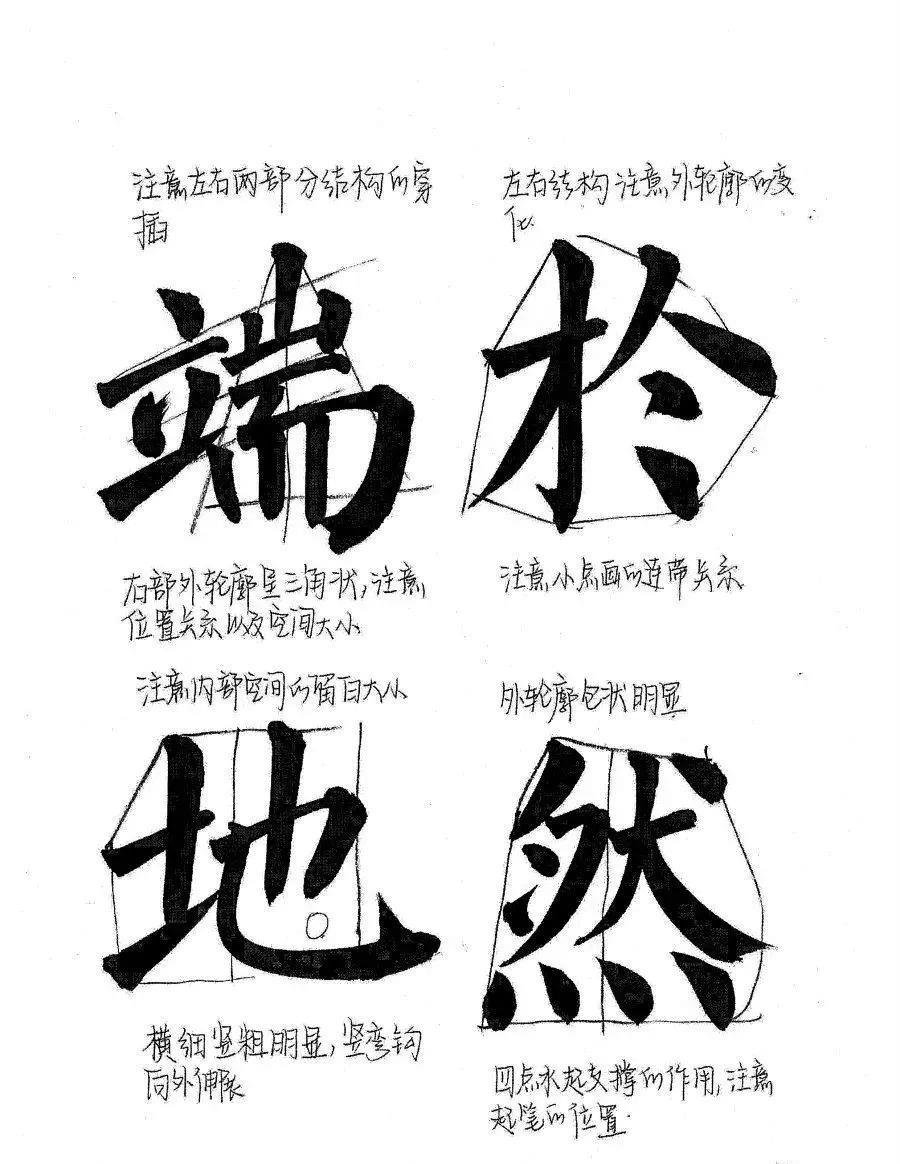 注意左右两部分结构的穿
插
端
右部外轮廓呈三角状,注意
位置关系以及空间大小
左右结构注意外轮廓的变
化.
於
注意小点画的连带关系
注意内部空间的留白大小
地
横细竖粗明显,竖弯钩
向外伸展
外轮廓包状明显
然
四点水起支撑的作用,注意
起笔的位置.